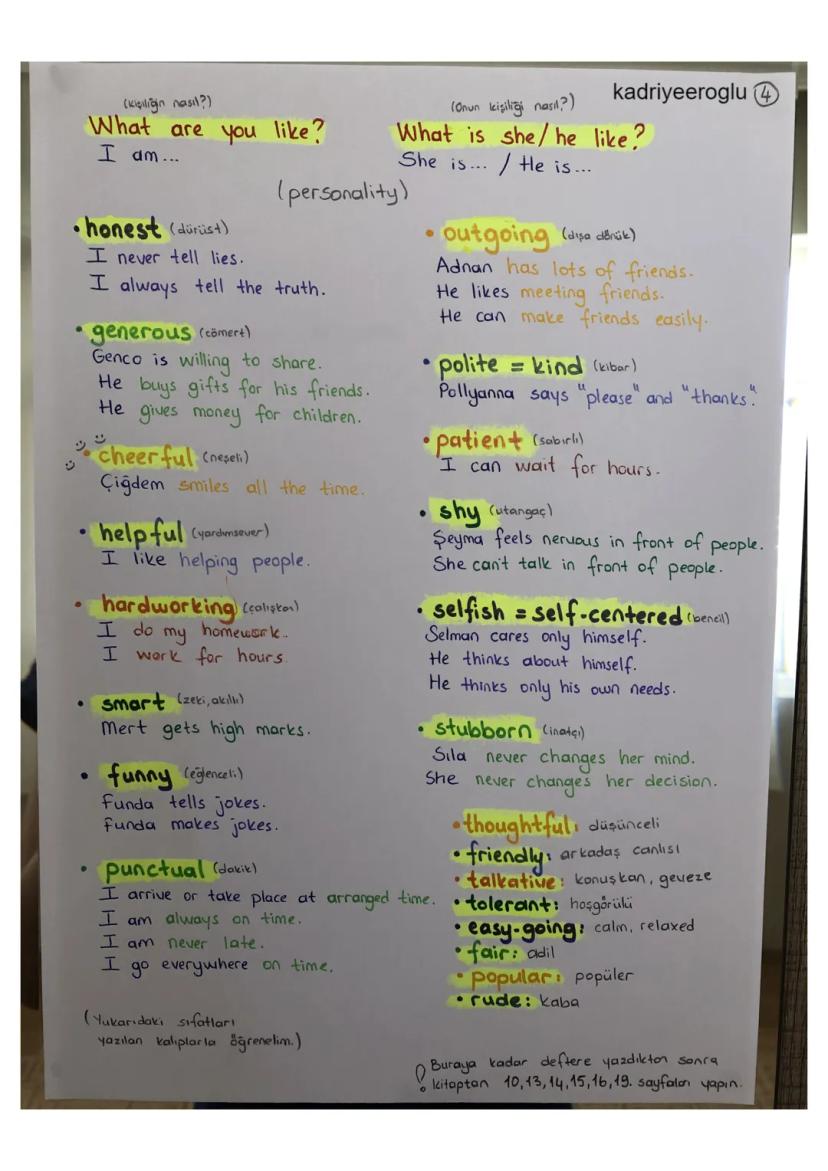 kadriyeeroglu 4
(kişiliğin nasıl?)
What are you like?
I am...
(Onun kişiliği nasıl?)
What is she/he like?
She is... / He is...
(personality)
• honest (dürüst)
I never tell lies.
I always tell the truth.
• generous (cömert)
Genco is willing to share.
He buys gifts for his friends.
He gives money for children.
• cheerful (neşeli)
Çiğdem smiles all the time.
• helpful (yardımsever)
I like helping people.
• hardworking (çalışkan)
I do my homework..
I work for hours.
• smart (zeki, akıllı)
Mert gets high marks.
• funny (eğlenceli)
Funda tells jokes.
Funda makes jokes.
• punctual (dakik)
I arrive or take place at arranged time.
I am always on time.
I am never late.
I go everywhere on time.
(Yukarıdaki sıfatları
yazılan kalıplarla öğrenelim.)
• outgoing (dışa dönük)
Adnan has lots of friends.
He likes meeting friends.
He can make friends easily.
• polite = kind (kibar)
Pollyanna says "please" and "thanks".
• patient (sabırlı)
I can wait for hours.
• shy (utangaç)
Şeyma feels nervous in front of people.
She can't talk in front of people.
• selfish = self-centered (bencil)
Selman cares only himself.
He thinks about himself.
He thinks only his own needs.
• stubborn (inatçı)
Sıla never changes her mind.
She never changes her decision.
• thoughtful: düşünceli
• friendly: arkadaş canlısı
• talkative: konuşkan, geveze
• tolerant: hoşgörülü
• easy-going: calm, relaxed
• fair: adil
• popular: popüler
• rude: kaba
! Buraya kadar deftere yazdıktan sonra
kitaptan 10,13,14,15,16,19. sayfaları yapın.